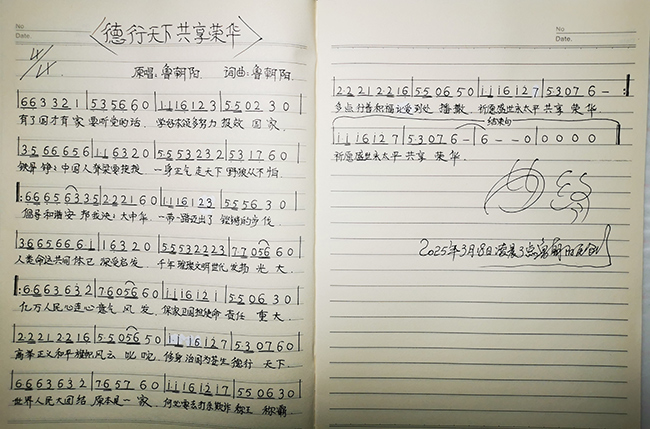 No
Date.
德行天下共享荣华
4/4
原唱:鲁朝阳 词曲:鲁朝阳
663321 | 535660 | 1116123 | 550230
有了国才有家 要听党的话. 学好本领多努力 报效 国家.
3566656 | 116320 | 5553232 | 531760
铁骨铮铮中国人脊梁 一身正气走天下 野狼从不怕.
66656335 | 222160 | 1116123 | 555630
倡导和谐安邦 大中华. 一带一路迈出了 铿锵的步伐.
36656661 | 16320 | 55532223 | 770560
人类命运共同体已 深受启发. 千年璀璨文明世代发扬 光大.
6663632 | 7605660 | 1116121 | 550630
亿万人民心连心意气 风发. 保家卫国担使命 责任 重大.
22212216 | 5505650 | 1116127 | 530760
高举正义和平旗帜风云 叱咤. 修身治国为苍生 德行 天下.
6663632 | 765760 | 1116127 | 550630
世界人民大团结 原本是一家. 何必要去打杀欺诈 称王 称霸.
No
Date.
22212216 | 550650 | 1116127 | 53076-
多点行善积福让爱到处 播撒. 祈愿盛世永太平 共享 荣华
结束句
1116127 | 53076- | 6--0 | 0000
祈愿盛世永太平 共享 荣华.
2025年3月18日凌晨3点